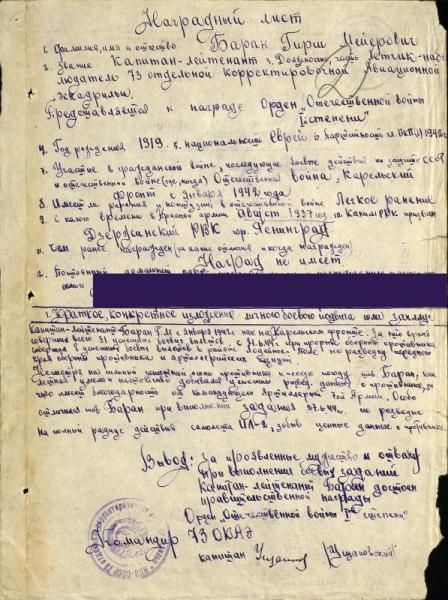 Наградный лист
1. Фамилия, имя и отчество Баран Гирш Мейерович
2. Звание Капитан-лейтенант 3. Должность, часть Летчик-наб-
людатель 73 отдельной корректировочной Авиационной
Эскадрильи.
Представляется к награде Орден "Отечественной войны
I степени"
4. Год рождения 1919. 5. национальность Еврей 6. Партийность
7. Участие в гражданской войне, последующих боевых действий по защите СССР
и отечественной войне (где, когда) Отечественной война, Карельский
фронт с января 1942 года
8. Имеет ли ранения и контузии в отечественной войне Легкое ранение
9. С какого времени в Красной армии Август 1937 год 10. Каким РВК призван
Дзержинский РВК гор. Ленинград
11. Чем ранее награжден (за какие отличия и когда награжден)
Наград не имеет
12. Постоянный домашний
семьи
1. Краткое, конкретное изложение личного боевого подвига или заслуг
капитан-лейтенант Баран Г.М. с января 1942 г. на Карельском фронте. За это время
совершил всего 31 боевых вылетов. 21.6.44 г. при прорыве обороны противника
совершил в районе Лодейное-Поле на разведку переднего
края обороны противника и артиллерийских
Несмотря на сильный зенитный огонь противника и плохую погоду тов Баран, как
умело и настойчиво добивался развед. данных о противнике, за
что имеет благодарность от командующего Артиллерией 7ой Армии. Особо
отличился тов Баран при выполнении задания 27.6.44 г. по разведке
на полный радиус действия самолета ИЛ-2, добыв ценные данные о противнике.
Вывод: за проявленные мужество и отвагу
при выполнении боевых заданий
Капитан-лейтенант Баран достоен
правительственной награды
Орден "Отечественной войны I степени"
Командир 73 ОКАЭ
капитан